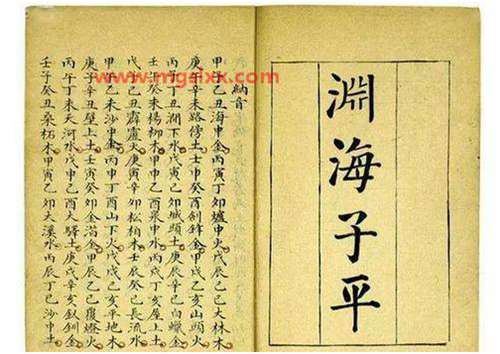 淵海子平
納音
甲子乙丑海中金丙寅丁卯爐中火戊辰己巳大林木
庚午辛未路傍土壬申癸酉劍鋒金甲戌乙亥山頭火
丙子丁丑澗下水戊寅己卯城頭土庚辰辛巳白蠟金
壬午癸未楊柳木甲申乙酉泉中水丙戌丁亥屋上土
戊子己丑霹靂火庚寅辛卯松柏木壬辰癸巳長流水
甲午乙未沙中金丙申丁酉山下火戊戌己亥平地木
庚子辛丑壁上土壬寅癸卯金泊金甲辰乙巳覆燈火
丙午丁未天河水戊申己酉大驛土庚戌辛亥釵釧金
壬子癸丑桑柘木甲寅乙卯大溪水丙辰丁巳沙中土
www.mgslxx.com